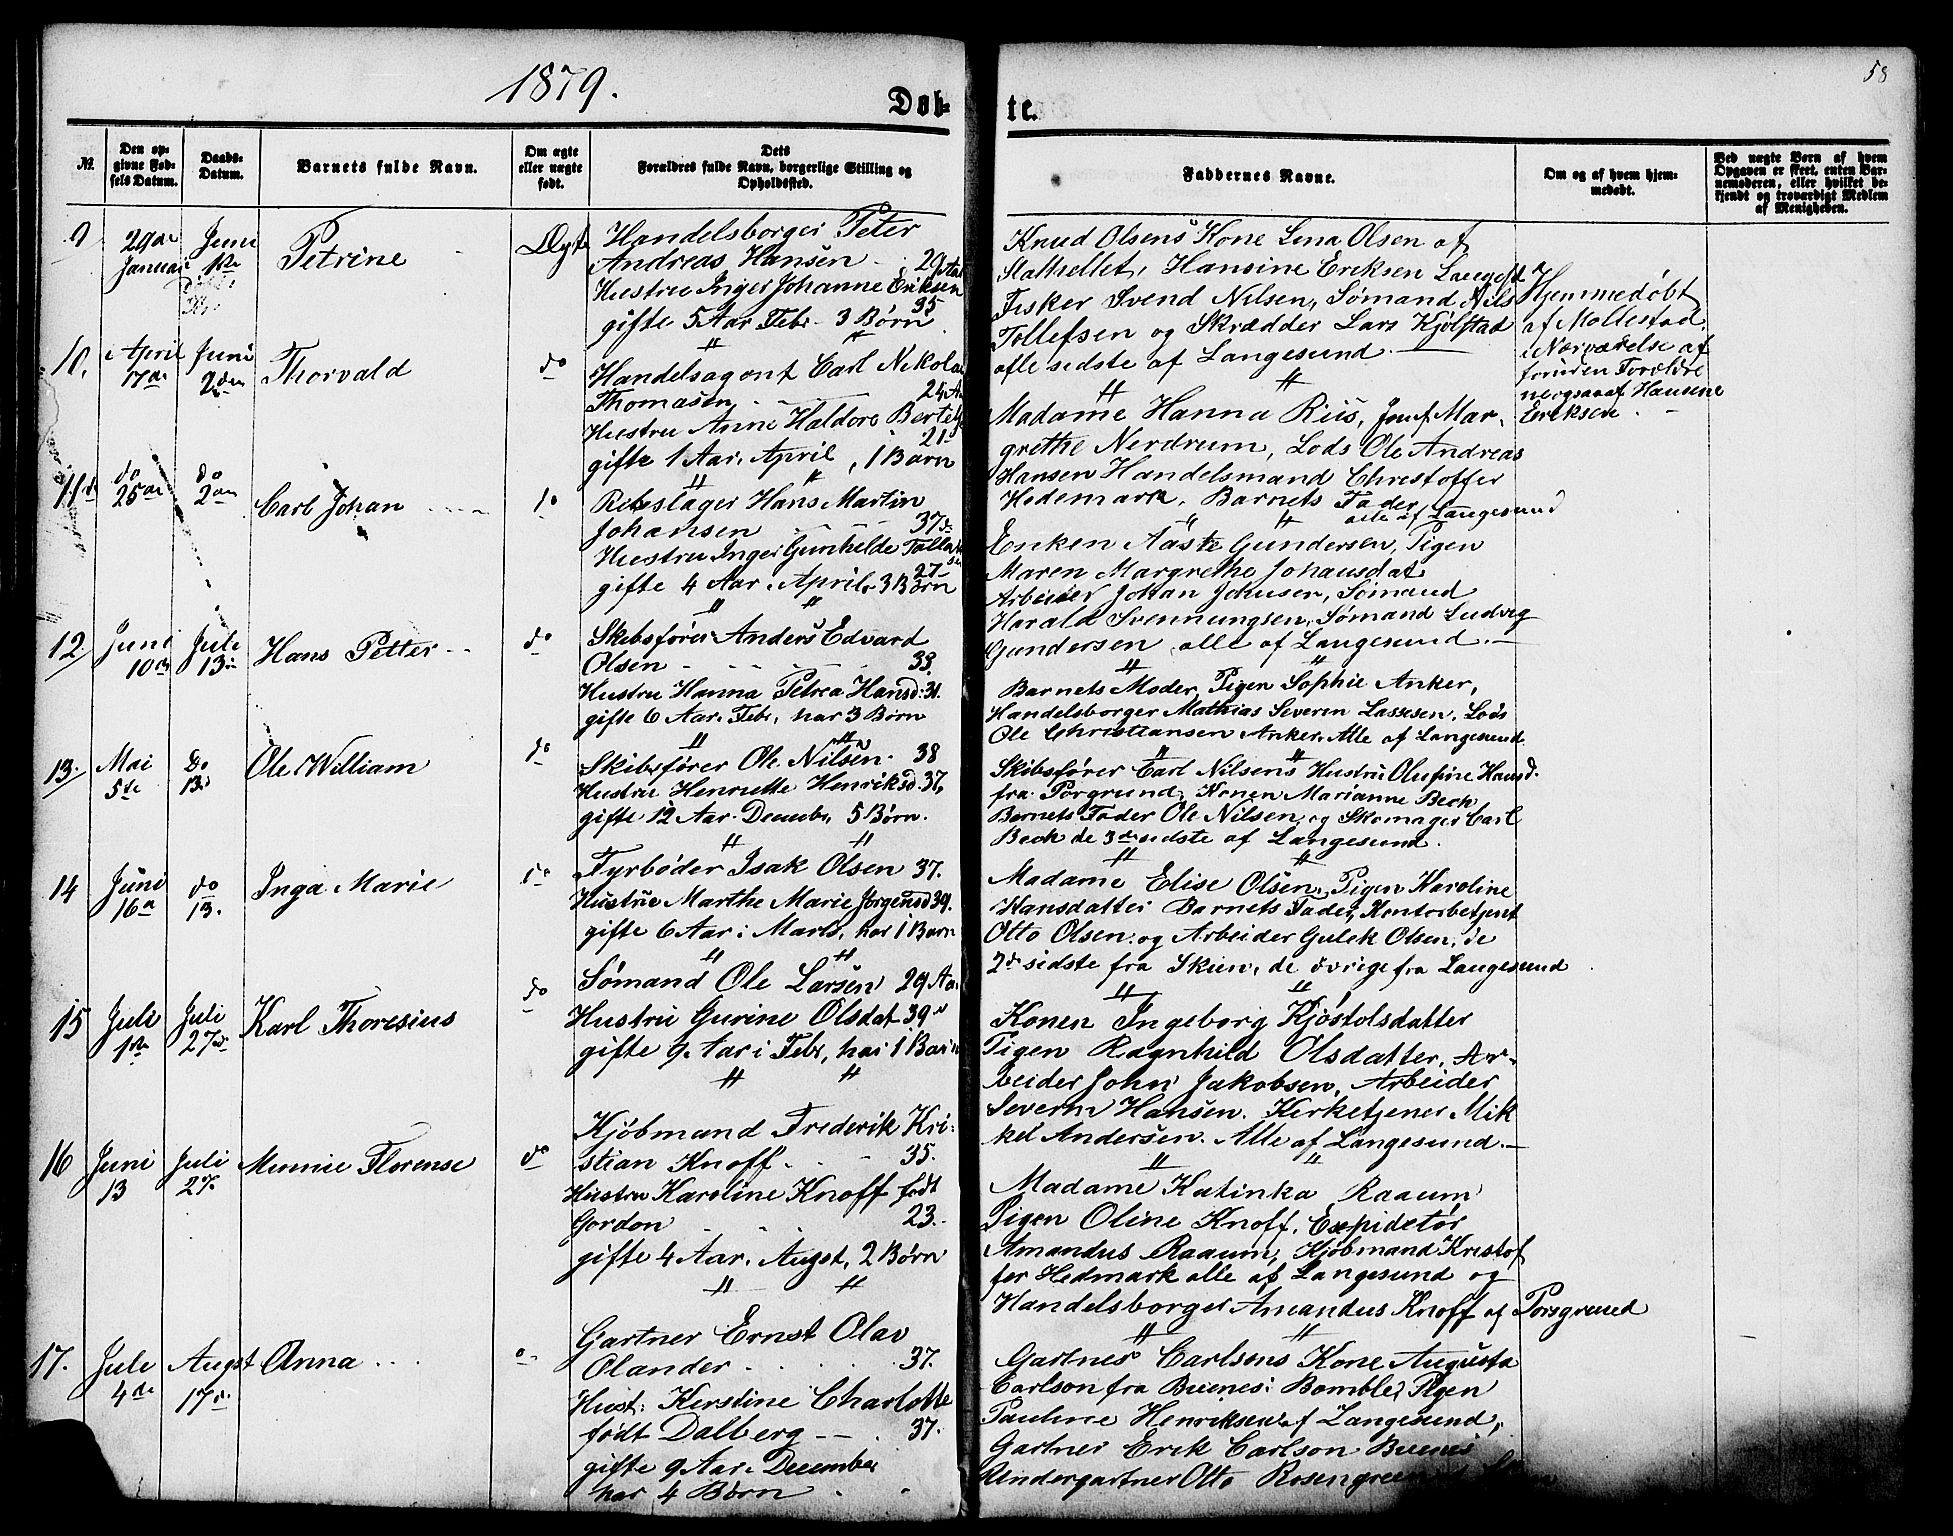 1879.
58
Døb-
te.
№
Den op-
givne Fød-
sels Datum.
Daabs-
Datum.
Barnets fulde Navn.
Om ægte
eller uægte
født.
Dets
Forældres fulde Navn, borgerlige Stilling og
Opholdssted.
Faddernes Navne.
Om og af hvem hjem-
medøbt.
Ved uægte Børn af hvem
Opgaven er skeet, enten Bar-
nemoderen, eller hvilket be-
kjendt og troværdigt Medlem
af Menigheden.
9
29de
Januar
Juni
1ste
Petrine
Ægte
Handelsborger Peter
Andreas Hansen 29 Aar
Hustru Inger Johanne Eriksen
35
gifte 5 Aar Febr. 3 Børn
Knud Olsens Kone Lena Olsen af
Stathellet, Hansine Eriksen Langesd
Fisker Svend Nilsen, Sømand Nils
Tollefsen og Skrædder Lars Kjølstad
alle sidste af Langesund
Hjemmedøbt
af Mollestad
i Nærværelse af
foruden Forældre
Hansine
Eriksen
10.
April
17de
Juni
2den
Thorvald
do
Handelsagent Carl Nikolai
Thomasen 24 A
Hustru Anne Haldore Bertels
21
gifte 1 Aar. April, 1 Barn
Madame Hanna Riis, Jomf. Mar-
grethe Nerdrum, Lods Ole Andreas
Hansen Handelsmand Christoffer
Hedemark, Barnets Fader
alle af Langesund
11
do
25de
do
2den
Carl Johan
do
Rebslager Hans Martin
Johansen 37
Hustru Inger Gunhilde Tollef
27
gifte 4 Aar. April 3 Børn
Enken Aaste Gundersen, Pigen
Maren Margrethe Johansdat
Arbeider Johan Johnsen, Sømand
Harald Svennungsen, Sømand Ludvig
Gundersen alle af Langesund.
12.
Juni
10de
Juli
13de
Hans Petter
do
Skibsfører Anders Edvard
Olsen 33.
Hustru Hanna Petrea Hansd: 31.
gifte 6 Aar. Febr, har 3 Børn
Barnets Moder, Pigen Sophie Anker,
Handelsborger Mathias Severin Lassesen, Lods
Ole Christiansen Anker. Alle af Langesund
13.
Mai
5te
Do
13de
Ole William
do
Skibsfører Ole Nilsen 38
Hustru Henriette Henriksd. 37,
gifte 12 Aar. Decembr, 5 Børn.
Skibsfører Carl Nilsens Hustru Olufine Hansd.
fra Porgrund, Konen Marianne Beck
Barnets Fader Ole Nilsen, og Skomager Carl
Beck de 3de sidste af Langesund.
14
Juni
16de
do
13.
Inga Marie
do
Fyrbøder Isak Olsen 37.
Hustru Marthe Marie Jørgensd 39.
gifte 6 Aar i Marts, har 1 Barn
Madame Elise Olsen, Pigen Karoline
Hansdatter Barnets Fader, Kontorbetjent
Otto Olsen. og Arbeider Gulek Olsen, de
2de sidste fra Skien, de øvrige fra Langesund
15
Juli
1ste
Juli
27de
Karl Thoresius
do
Sømand Ole Larsen 29 Aar
Hustru Gurine Olsdat 39
gifte 9 Aar i Febr, har 1 Barn
Konen Ingeborg Kjøstolsdatter
Pigen Ragnhild Olsdatter, Ar-
beider John Jakobsen, Arbeider
Severin Hansen. Kirketjener Mik
kel Andersen. Alle af Langesund.
16
Juni
13
Juli
27.
Minnie Florense
do
Kjøbmand Frederik Kri-
stian Knoff 35.
Hustru Karoline Knoff født
Gordon 23.
gifte 4 Aar. Augst, 2 Børn
Madame Katinka Raaum
Pigen Oline Knoff, Expiditør
Amandus Raaum, Kjøbmand Kristof
fer Hedmark alle af Langesund og
Handelsborger Amandus Knoff af Porsgrund
17.
Juli
4de
Augst
17de
Anna
Gartner Ernst Olav
Olander 37.
Hust. Kerstine Charlotte
født Dalberg 37.
gifte 9 Aar. December
har 4 Børn
Gartner Carlsons Kone Augusta
Carlson fra Buenes i Bamble, Pigen
Pauline Henriksen af Langesund,
Gartner Erik Carlson Buenes
Undergartner Otto Rosengreen